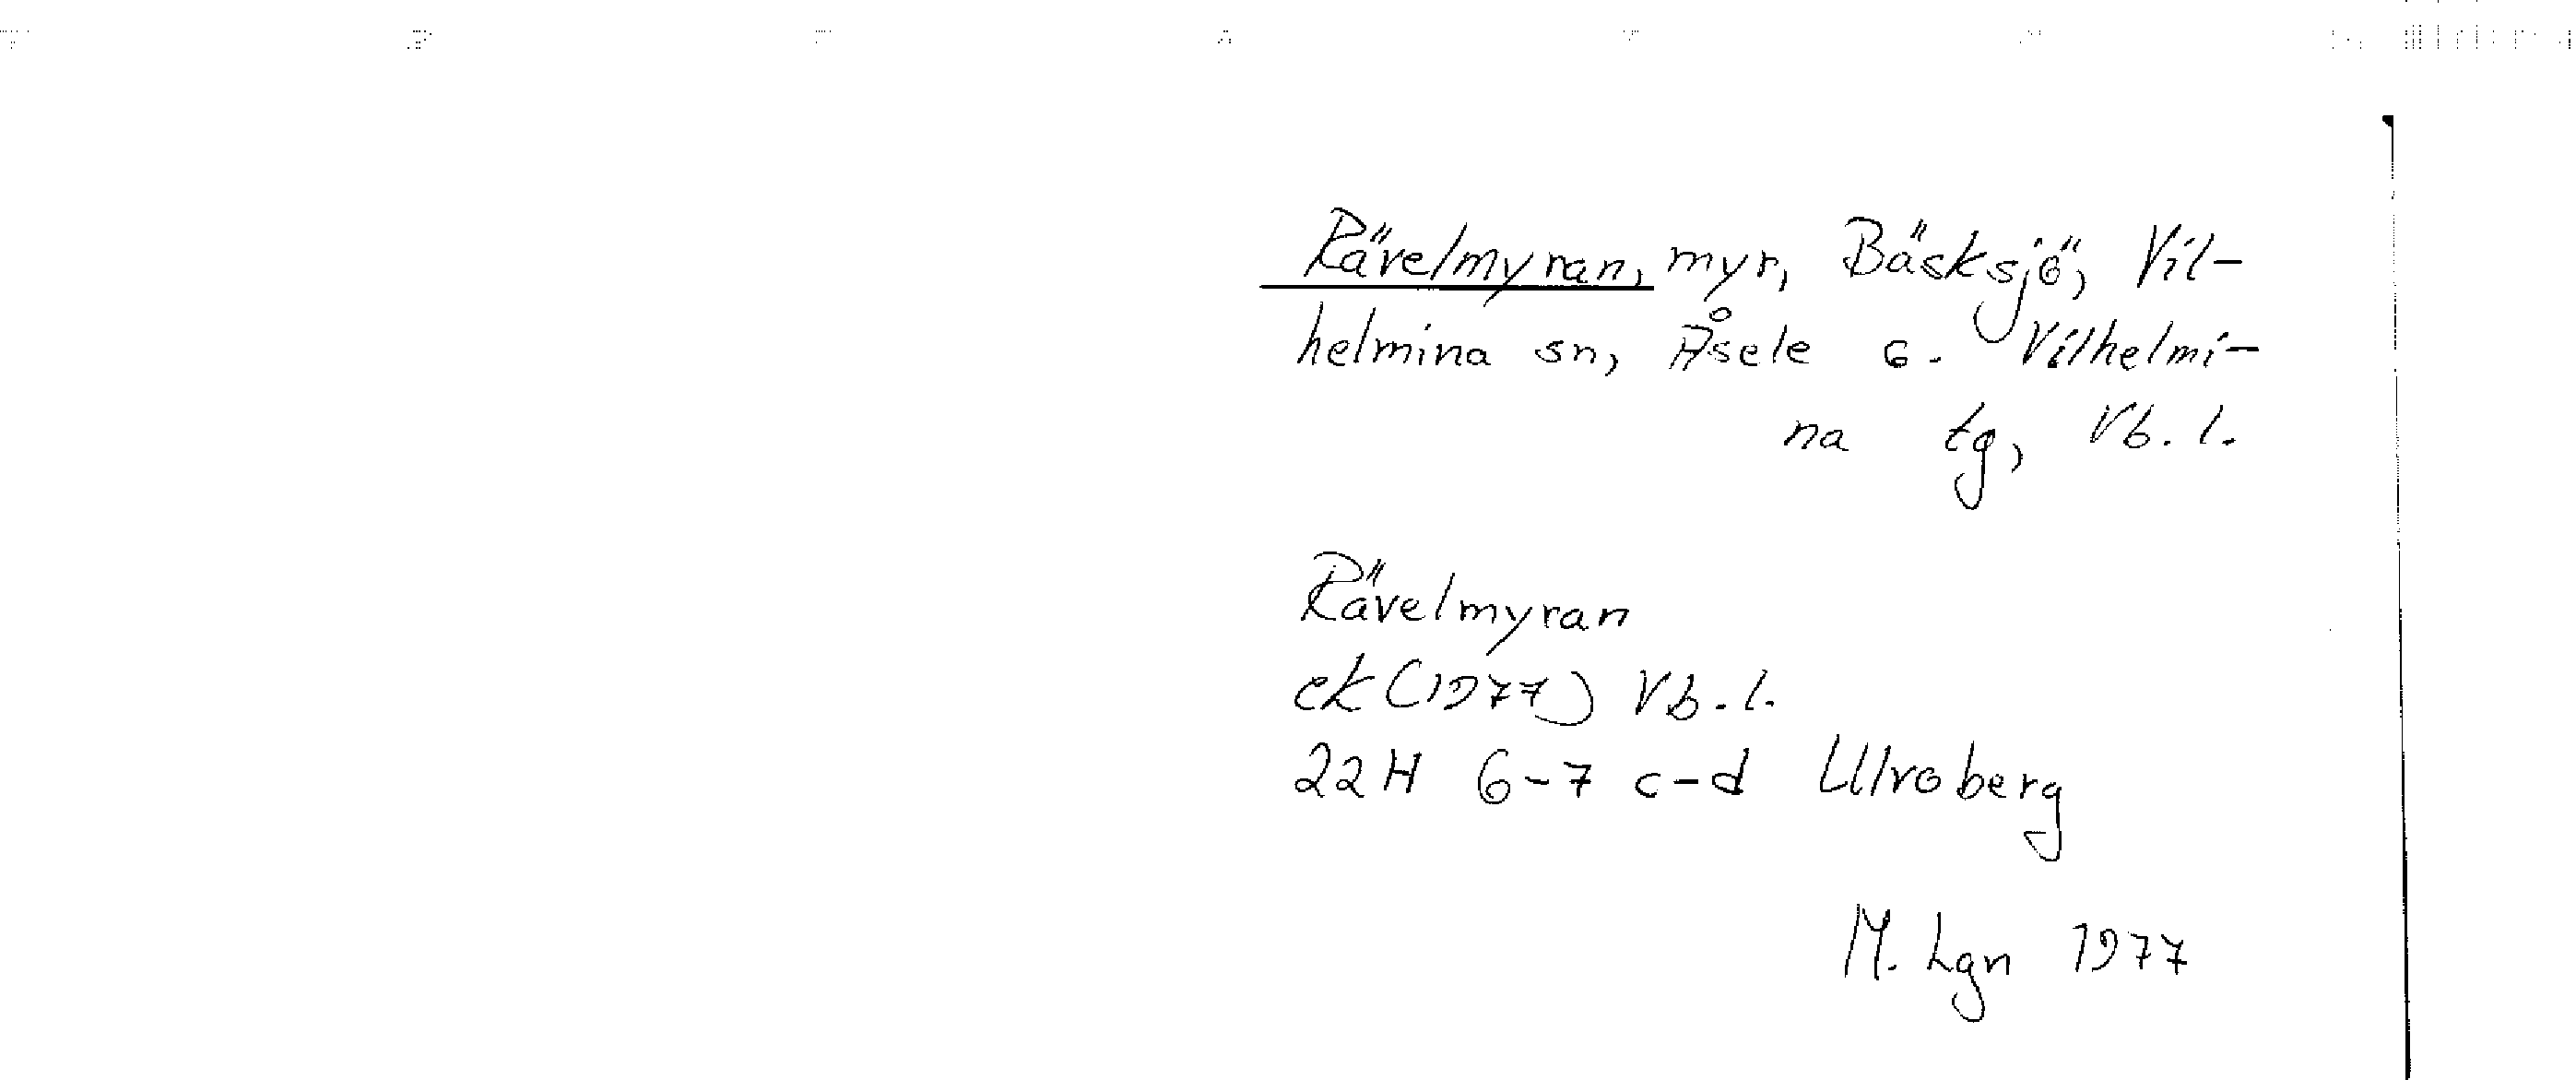 Rävelmyran, myr, Bäsksjö, Vil-
helmina sn, Åsele o. Vilhelmi-
na tg, Vb. l.
Rävelmyran
ek (1977) Vb. l.
22H 6-7 c-d Ulvoberg
M. Lgn 1977